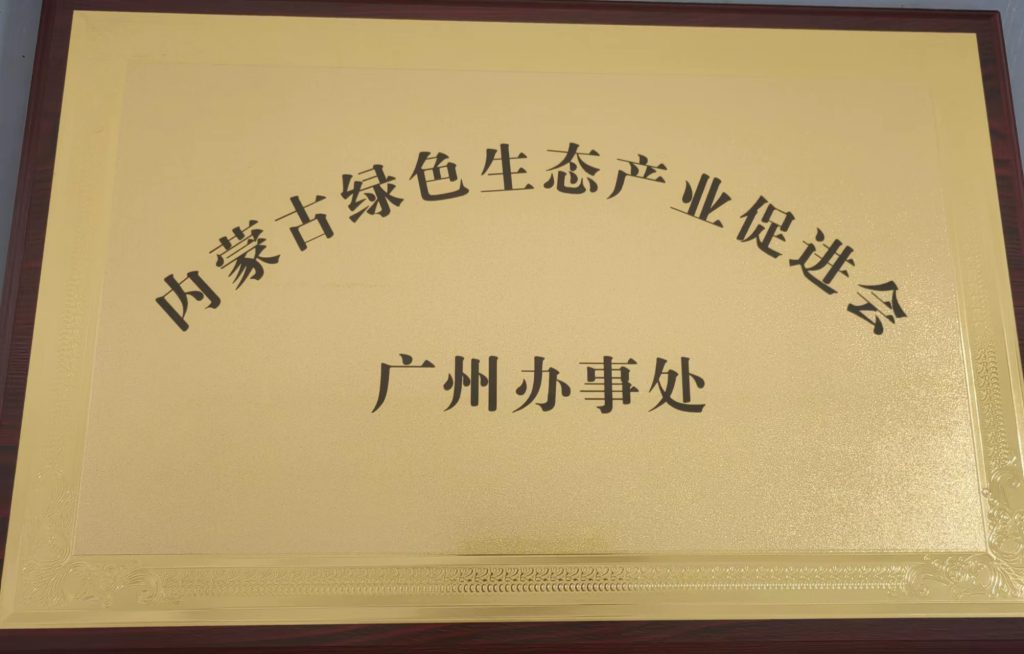 内蒙古绿色生态产业促进会
广州办事处